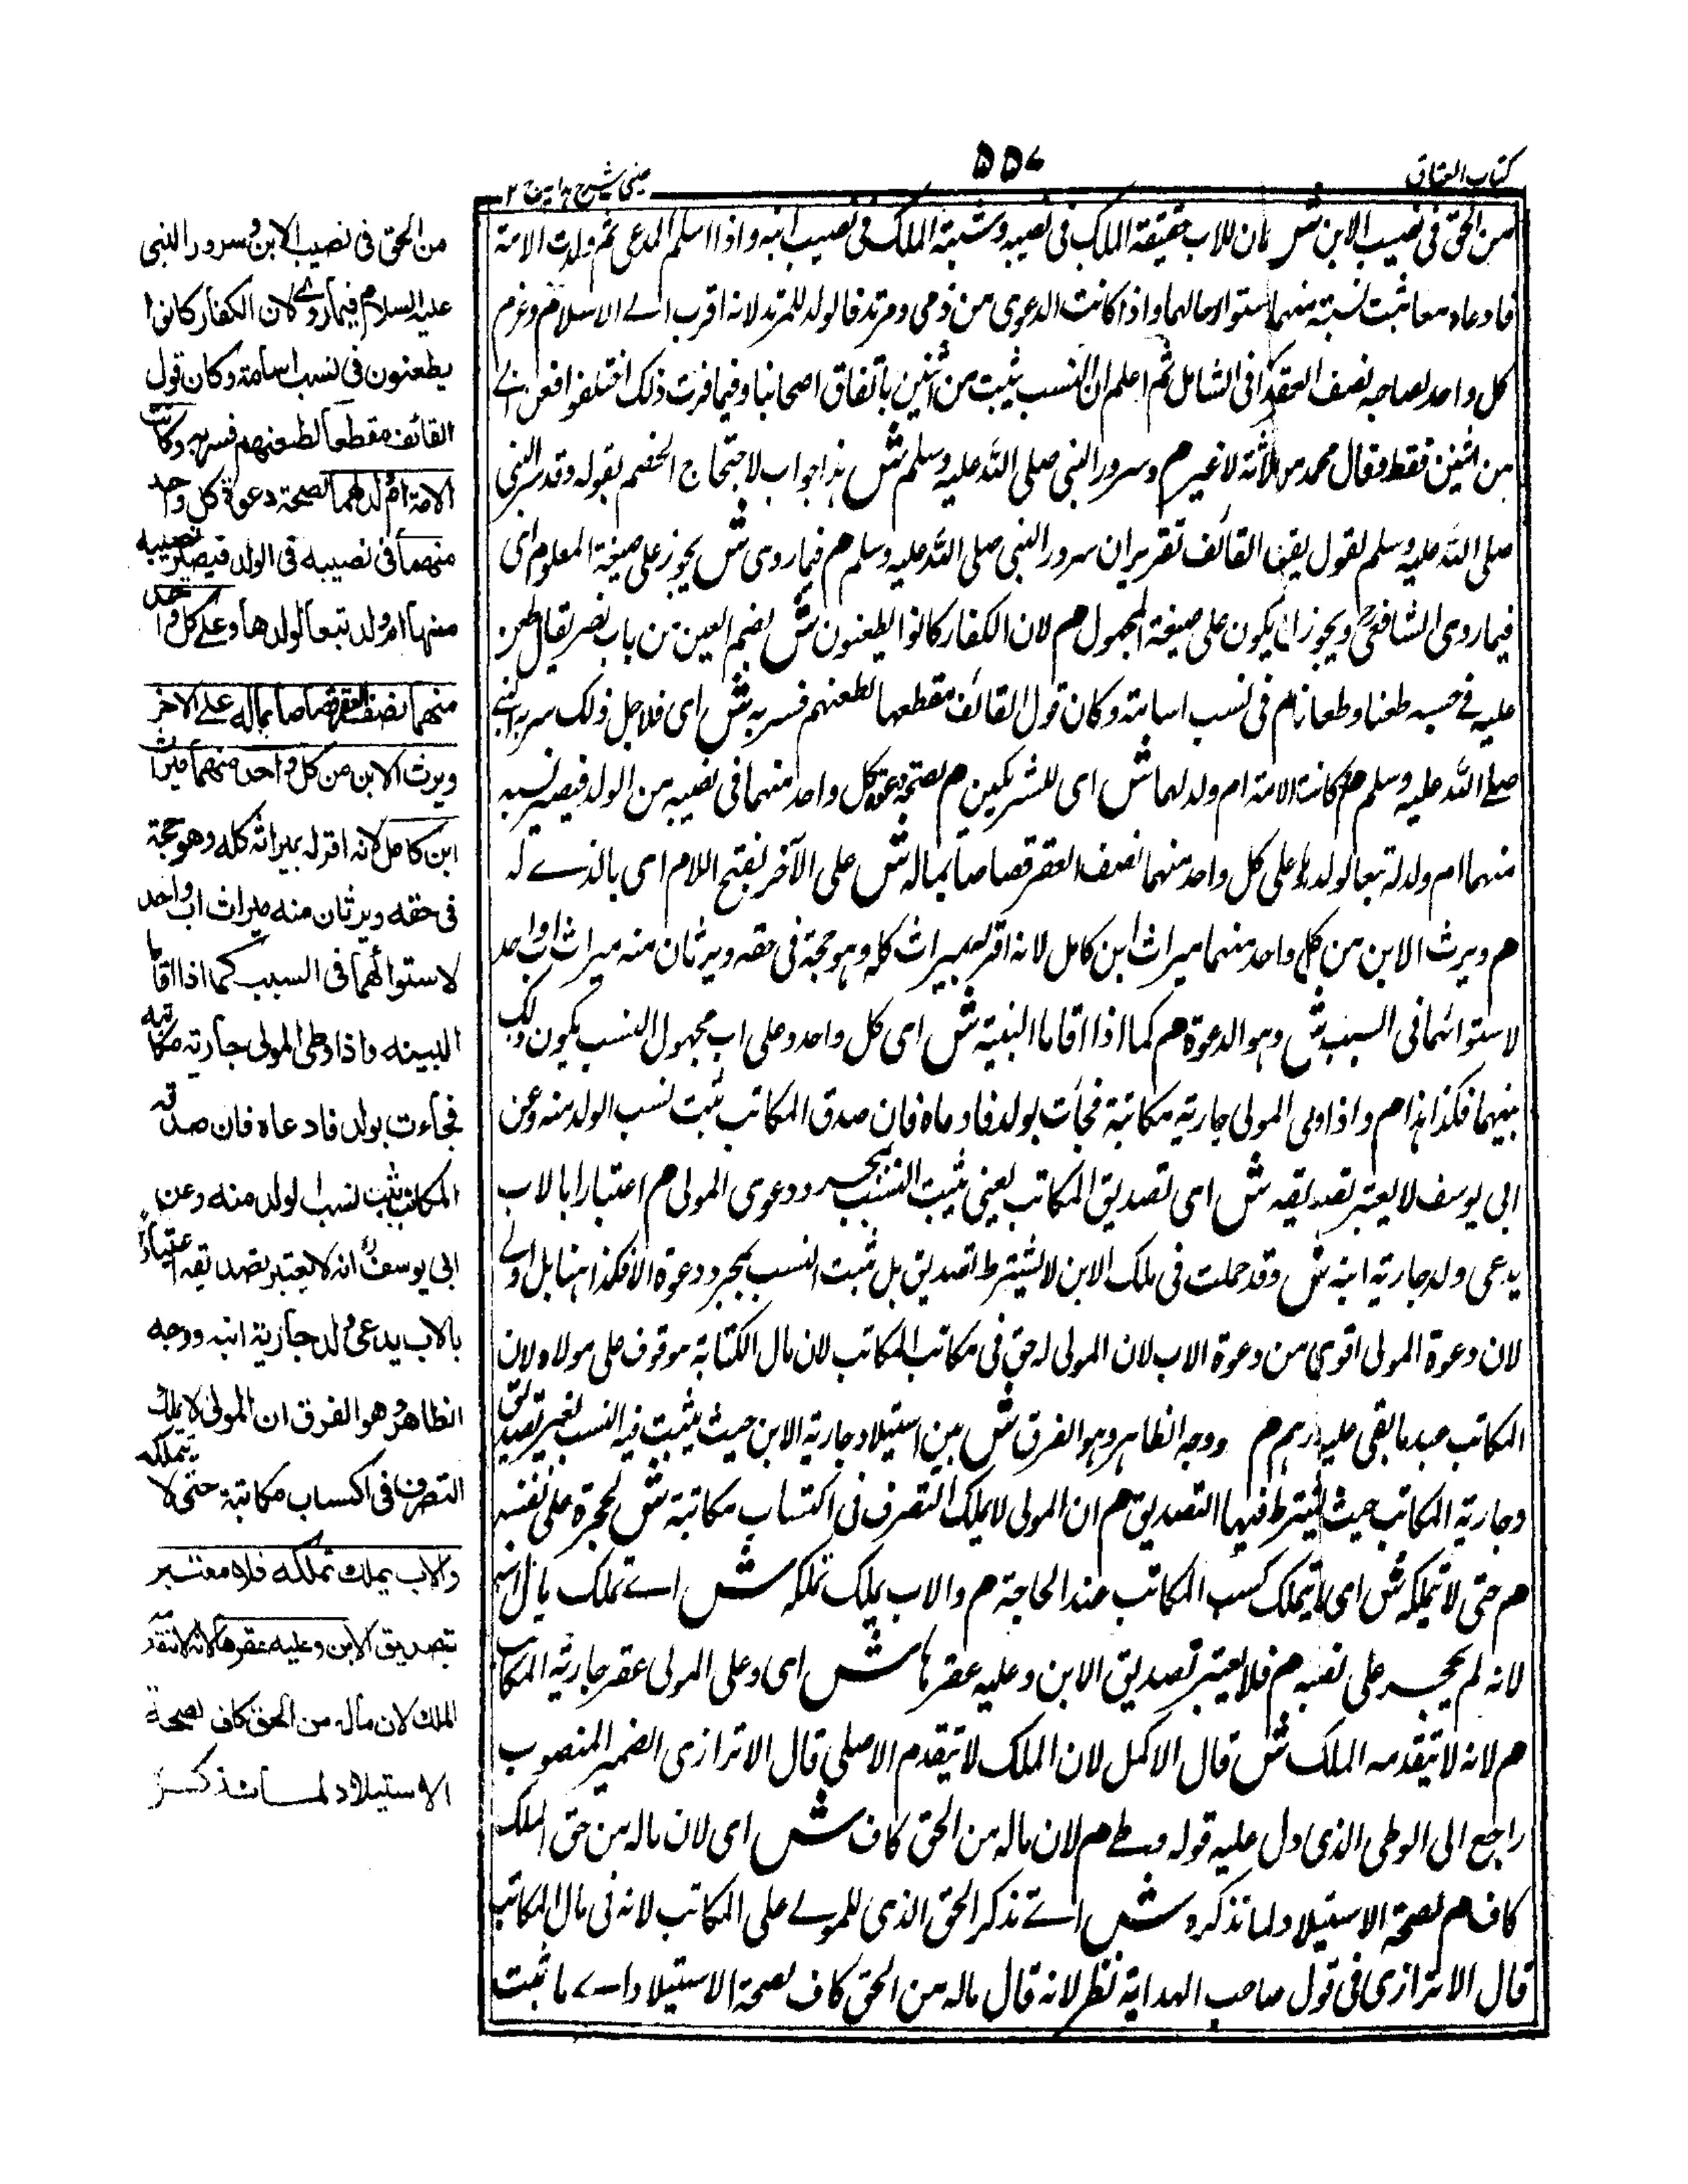 كتاب العتاق
٥٥٧
عينى شرح هداية ج ٢
من الحق فى نصيب الابن ش بان للاب حقيقة الملك فى نصيبه وشبهة الملك فى نصيب ابنه واذا اسلم المدعى ثم ولدت الامة
فادعاه معا ثبت نسبته منهما لاستواء حالهما واذا كانت الدعوى من ذمى ومرتد فالولد للمرتد لانه اقرب الى الاسلام وغرم
كل واحد لصاحبه نصف العقر كذا فى الشامل ثم اعلم ان النسب يثبت من اثنين باتفاق اصحابنا وفيما فوق ذلك اختلفوا فعن ابى
من اثنين فقط وقال محمد من ثلاثة لا غير م وسرور النبى صلى الله عليه وسلم ش هذا جواب لاحتجاج الخصم بقوله وقد سر النبى
صلى الله عليه وسلم بقول القائف تقريره ان سرور النبى صلى الله عليه وسلم م فيما روى ش يجوز على صيغة المعلوم اى
فيما روى الشافعى ويجوز ان يكون على صيغة المجهول م لان الكفار كانوا يطعنون ش بضم العين من باب نصر يقال طعن
عليه فى حسبه طعنا وطعانا م فى نسب اسامة وكان قول القائف مقطعا لطعنهم فسر به ش اى فلاجل ذلك سر به النبى
صلى الله عليه وسلم م وكانت الامة ام ولد لهما ش اى للشريكين م لصحة دعوة كل واحد منهما فى نصيبه من الولد فيصير نصيبه
منهما ام ولد له تبعا لولدها وعلى كل واحد منهما نصف العقر قصاصا بماله ش على الآخر بفتح اللام اى بالذى له
م ويرث الابن من كل واحد منهما ميراث ابن كامل لانه اقر له بميراث كله وهو حجة فى حقه ويرثان منه ميراث اب واحد
لاستوائهما فى السبب ش وهو الدعوة م كما اذا اقاما البينة ش اى كل واحد وعلى اب مجهول النسب يكون ذلك
بينهما فكذا هذا م واذا وطى المولى جارية مكاتبة فجأت بولد فادعاه فان صدق المكاتب ثبت نسب الولد منه وعن
ابى يوسف لا يعتبر تصديقه ش اى تصديق المكاتب يعنى يثبت النسب بمجرد دعوى المولى م اعتبارا بالاب
يدعى ولد جارية ابنه ش وقد حملت فى ملك الابن لا يشترط تصديق بل ثبت النسب بمجرد دعوة الاب فكذا هنا بل اولى
لان دعوة المولى اقوى من دعوة الاب لان المولى له حق فى مكاتب المكاتب لان مال الكتابة موقوف على مولاه ولان
المكاتب عبد ما بقى عليه درهم م ووجه الظاهر وهو الفرق ش بين استيلاد جارية الابن حيث يثبت فيه النسب بغير تصديق
وجارية المكاتب حيث يشترط فيها التصديق م ان المولى لا يملك التصرف فى اكتساب مكاتبة ش لحجره على نفسه
م حتى لا تيملكه ش اى لا يتملك كسب المكاتب عند الحاجة م والاب يملك تملكه ش اى تملك مال ابنه
لانه لم يحجر على نفسه م فلا يعتبر تصديق الابن وعليه عقرها ش اى وعلى المولى عقر جارية المكاتب
م لانه لا يتقدمه الملك ش قال الاكمل لان الملك لا يتقدم الاصلى قال الاترازى الضمير المنصوب
راجع الى الوطى الذى دل عليه قوله وطى م لان ماله من الحق كاف ش اى لان ماله من حق الملك
كاف م لصحة الاستيلاد لما نذكره ش اى نذكر الحق الذى للمولى على المكاتب لانه فى مال المكاتب
قال الاترازى فى قول صاحب الهداية نظر لانه قال ماله من الحق كاف لصحة الاستيلاد اى ما ثبت
من الحق فى نصيب الابن وسرور النبى
عليه السلام فيما روى لان الكفار كانوا
يطعنون فى نسب اسامة وكان قول
القائف مقطعا لطعنهم فسر به وكانت
الامة ام ولد لهما لصحة دعوة كل واحد
منهما فى نصيبه فى الولد فيصير نصيبه
منها ام ولد تبعا لولدها وعلى كل واحد
منهما نصف العقر قصاصا بماله على الاخر
ويرث الابن من كل واحد منهما ميراث
ابن كامل لانه اقر له بميراثه كله وهو حجة
فى حقه ويرثان منه ميراث اب واحد
لاستوائهما فى السبب كما اذا اقاما
البينه واذا وطى المولى جارية مكاتبه
فجاءت بولد فادعاه فان صدقه
المكاتب ثبت نسب الولد منه وعن
ابى يوسف انه لا يعتبر تصديقه اعتبارا
بالاب يدعى ولد جارية ابنه ووجه
الظاهر وهو الفرق ان المولى لا يملك
التصرف فى اكساب مكاتبه حتى لا يتملكه
والاب يملك تملكه فلا معتبر
بتصديق الابن وعليه عقرها لانه لا يتقدمه
الملك لان ماله من الحق كاف لصحة
الاستيلاد لما نذكر